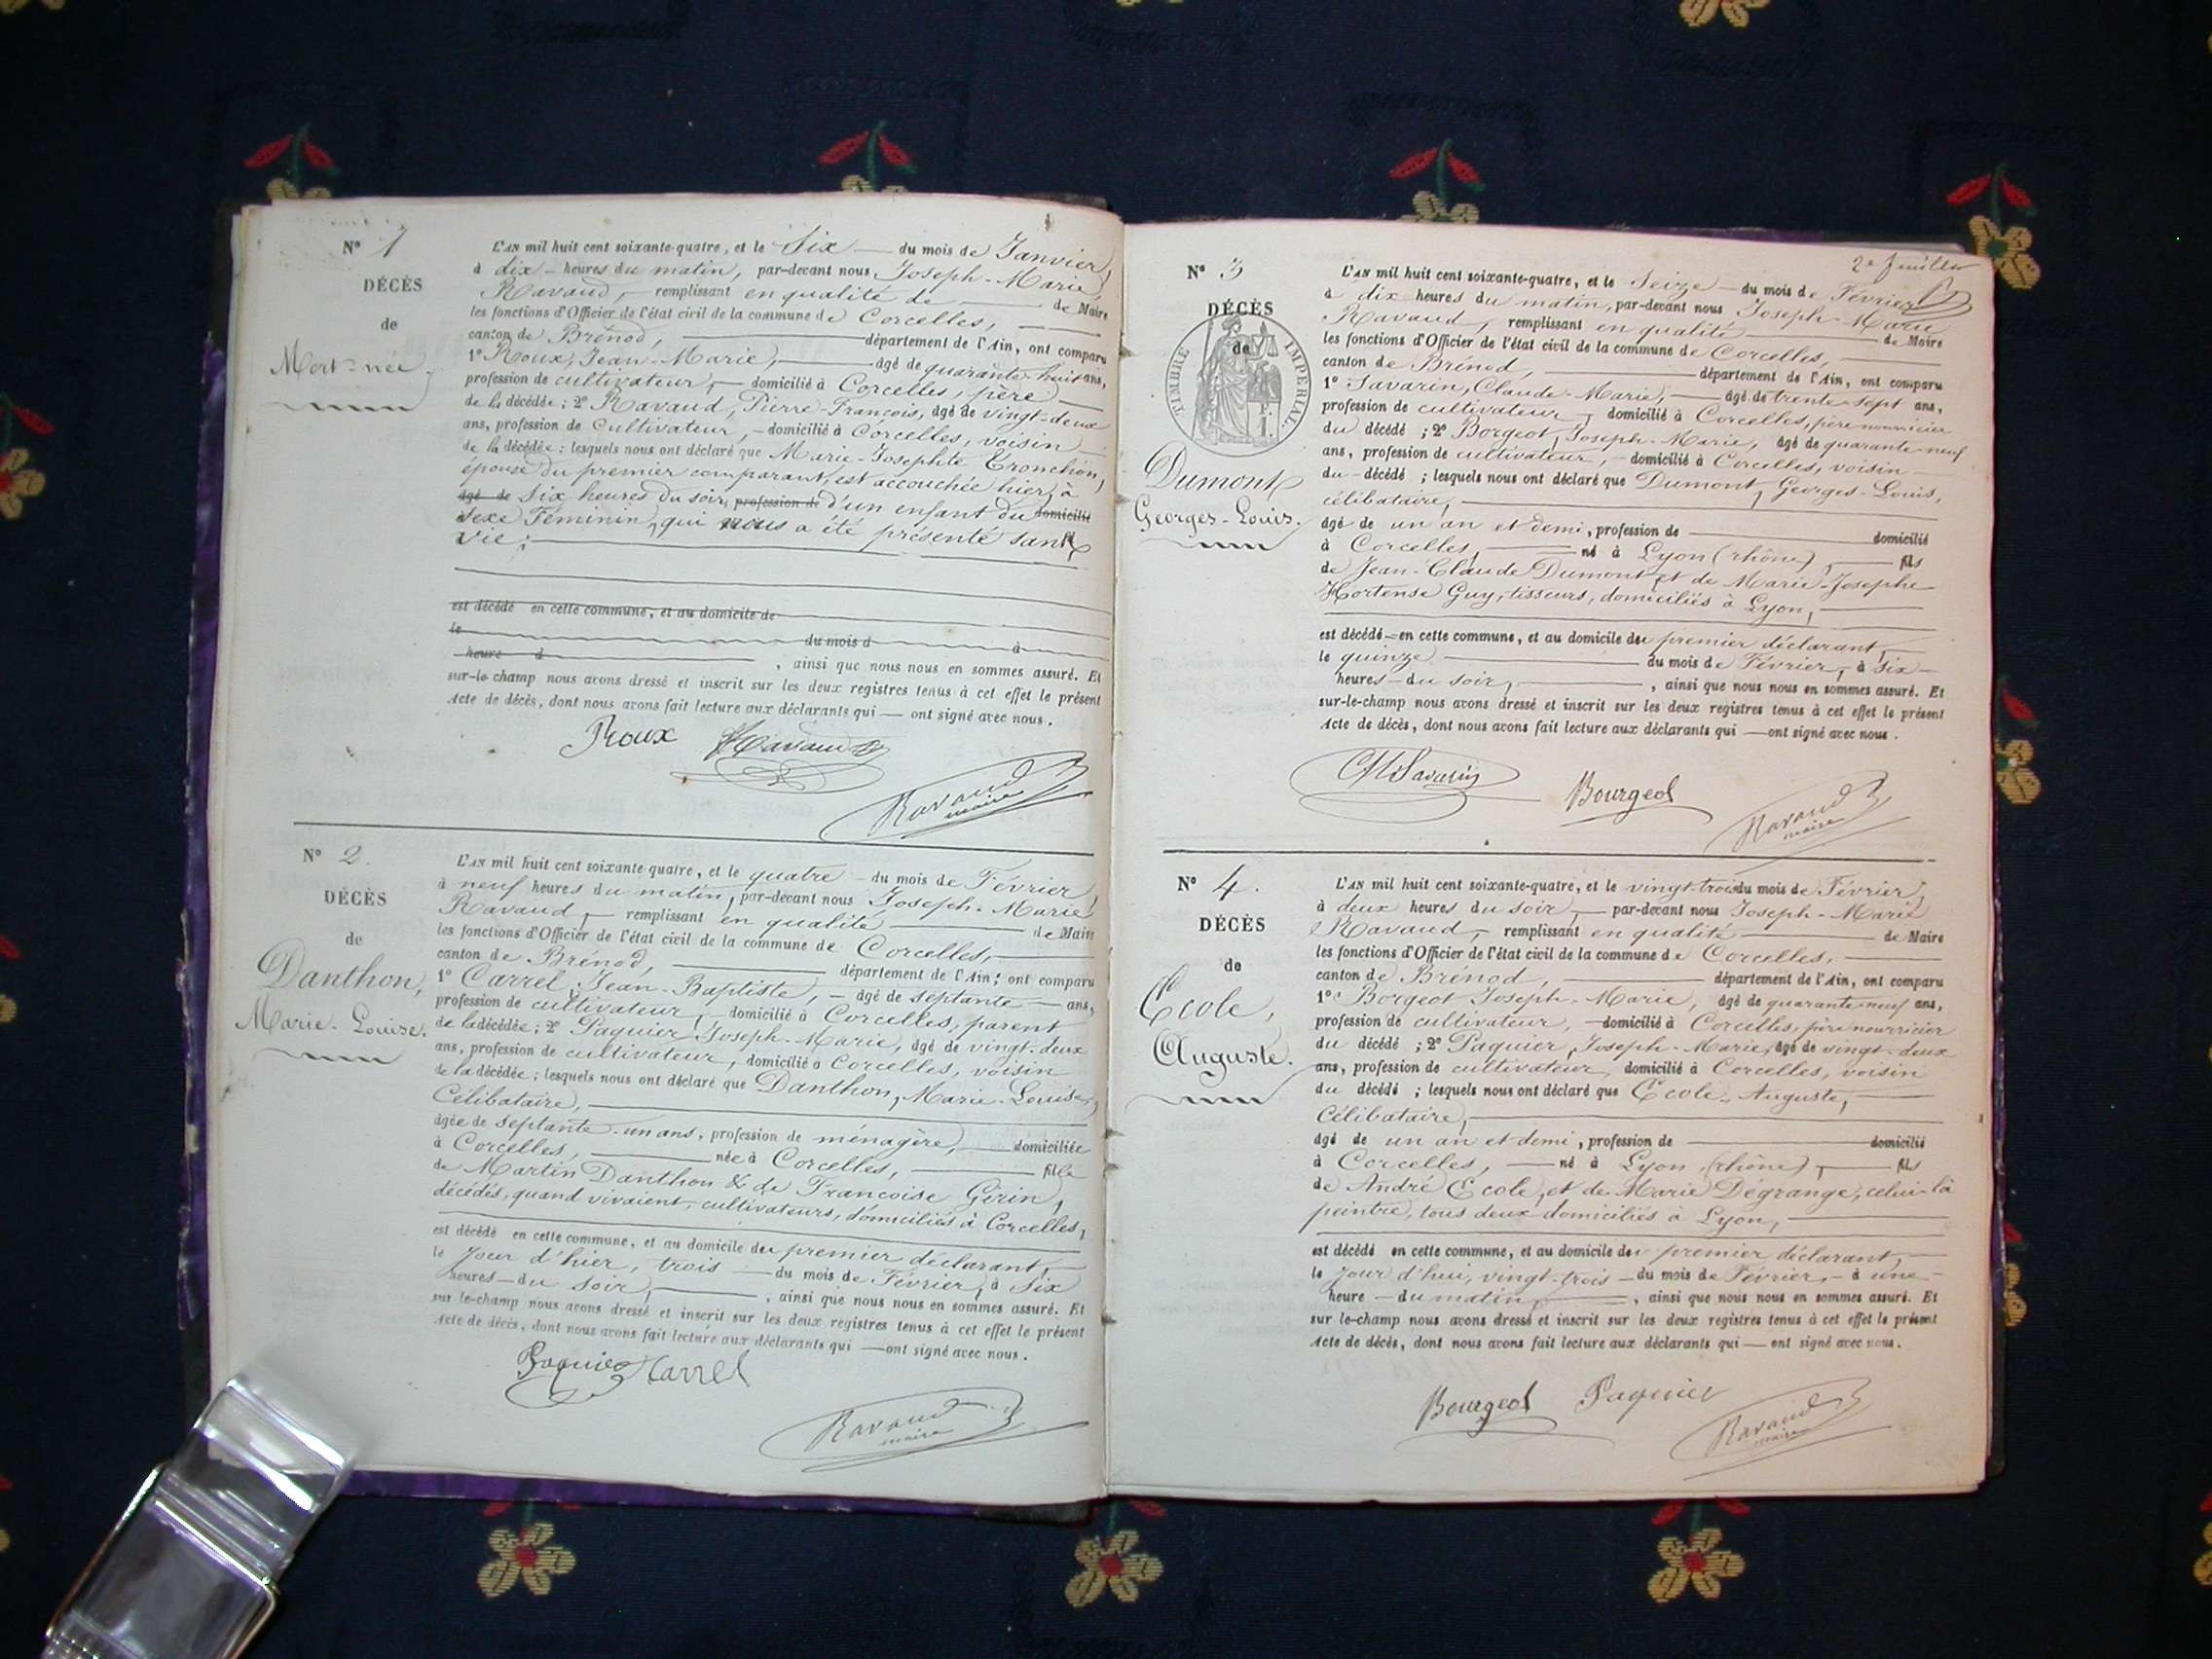 N° 1
DÉCÈS
de
Mort-née.
L'AN mil huit cent soixante-quatre, et le Six du mois de Janvier,
à dix heures du matin, par-devant nous Joseph-Marie
Ravaud, remplissant en qualité de de Maire
les fonctions d'Officier de l'état civil de la commune de Corcelles,
canton de Brénod, département de l'Ain, ont comparu
1° Roux, Jean-Marie, âgé de quarante-huit ans,
profession de cultivateur, domicilié à Corcelles, père
de la décédée; 2° Ravaud, Pierre-François, âgé de vingt-deux
ans, profession de Cultivateur, domicilié à Corcelles, voisin
de la décédée; lesquels nous ont déclaré que Marie-Josephte Tronchon,
épouse du premier comparant, est accouchée hier, à
âgé de Six heures du soir, profession de d'un enfant du domicilié
Sexe Féminin, qui nous a été présenté sans
vie;
est décédé en cette commune, et au domicile de
le du mois d à
heure d , ainsi que nous nous en sommes assuré. Et
sur-le-champ nous avons dressé et inscrit sur les deux registres tenus à cet effet le présent
Acte de décès, dont nous avons fait lecture aux déclarants qui — ont signé avec nous.
Roux Ravaud
Ravaud
maire
N° 2.
DÉCÈS
de
Danthon,
Marie-Louise.
L'AN mil huit cent soixante-quatre, et le quatre du mois de Février,
à neuf heures du matin, par-devant nous Joseph-Marie
Ravaud, remplissant en qualité de Maire
les fonctions d'Officier de l'état civil de la commune de Corcelles,
canton de Brénod, département de l'Ain, ont comparu
1° Carrel, Jean-Baptiste, âgé de septante ans,
profession de cultivateur, domicilié à Corcelles, parent
de la décédée; 2° Paquier, Joseph-Marie, âgé de vingt-deux
ans, profession de cultivateur, domicilié à Corcelles, voisin
de la décédée; lesquels nous ont déclaré que Danthon, Marie-Louise,
Célibataire,
âgée de septante-un ans, profession de ménagère, domiciliée
à Corcelles, née à Corcelles, fille
de Martin Danthon & de Francoise Gérin,
décédés, quand vivaient, cultivateurs, domiciliés à Corcelles,
est décédé en cette commune, et au domicile du premier déclarant,
le Jour d'hier, trois du mois de Février, à Six
heures du soir, , ainsi que nous nous en sommes assuré. Et
sur-le-champ nous avons dressé et inscrit sur les deux registres tenus à cet effet le présent
Acte de décès, dont nous avons fait lecture aux déclarants qui — ont signé avec nous.
Paquier Carrel
Ravaud
maire
2e feuillet
N° 3
DÉCÈS
de
TIMBRE IMPERIAL
1 F.
Dumont
Georges-Louis.
L'AN mil huit cent soixante-quatre, et le Seize du mois de Février,
à dix heures du matin, par-devant nous Joseph-Marie
Ravaud, remplissant en qualité de Maire
les fonctions d'Officier de l'état civil de la commune de Corcelles,
canton de Brénod, département de l'Ain, ont comparu
1° Savarin, Claude-Marie, âgé de trente-sept ans,
profession de cultivateur, domicilié à Corcelles, père nourricier
du décédé; 2° Borgeot, Joseph-Marie, âgé de quarante-neuf
ans, profession de cultivateur, domicilié à Corcelles, voisin
du décédé; lesquels nous ont déclaré que Dumont, Georges-Louis,
célibataire,
âgé de un an et demi, profession de domicilié
à Corcelles, né à Lyon (rhône), fils
de Jean-Claude Dumont et de Marie-Josephe
Hortense Guy, tisseurs, domiciliés à Lyon,
est décédé en cette commune, et au domicile du premier déclarant,
le quinze du mois de Février, à six
heures du soir, , ainsi que nous nous en sommes assuré. Et
sur-le-champ nous avons dressé et inscrit sur les deux registres tenus à cet effet le présent
Acte de décès, dont nous avons fait lecture aux déclarants qui — ont signé avec nous.
CMSavarin Bourgeot
Ravaud
maire
N° 4.
DÉCÈS
de
Ecole,
Auguste.
L'AN mil huit cent soixante-quatre, et le vingt-trois du mois de Février,
à deux heures du soir, par-devant nous Joseph-Marie
Ravaud, remplissant en qualité de Maire
les fonctions d'Officier de l'état civil de la commune de Corcelles,
canton de Brénod, département de l'Ain, ont comparu
1° Borgeot Joseph-Marie, âgé de quarante-neuf ans,
profession de cultivateur, domicilié à Corcelles, père nourricier
du décédé; 2° Paquier, Joseph-Marie, âgé de vingt-deux
ans, profession de cultivateur, domicilié à Corcelles, voisin
du décédé; lesquels nous ont déclaré que Ecole, Auguste,
Célibataire,
âgé de un an et demi, profession de domicilié
à Corcelles, né à Lyon, (rhône), fils
de André Ecole, et de Marie Dégrange, celui-là
peintre, tous deux domiciliés à Lyon,
est décédé en cette commune, et au domicile du premier déclarant,
le Jour d'hui, vingt-trois du mois de Février, à une
heure du matin, , ainsi que nous nous en sommes assuré. Et
sur le-champ nous avons dressé et inscrit sur les deux registres tenus à cet effet le présent
Acte de décès, dont nous avons fait lecture aux déclarants qui — ont signé avec nous.
Bourgeot Paquier
Ravaud
maire